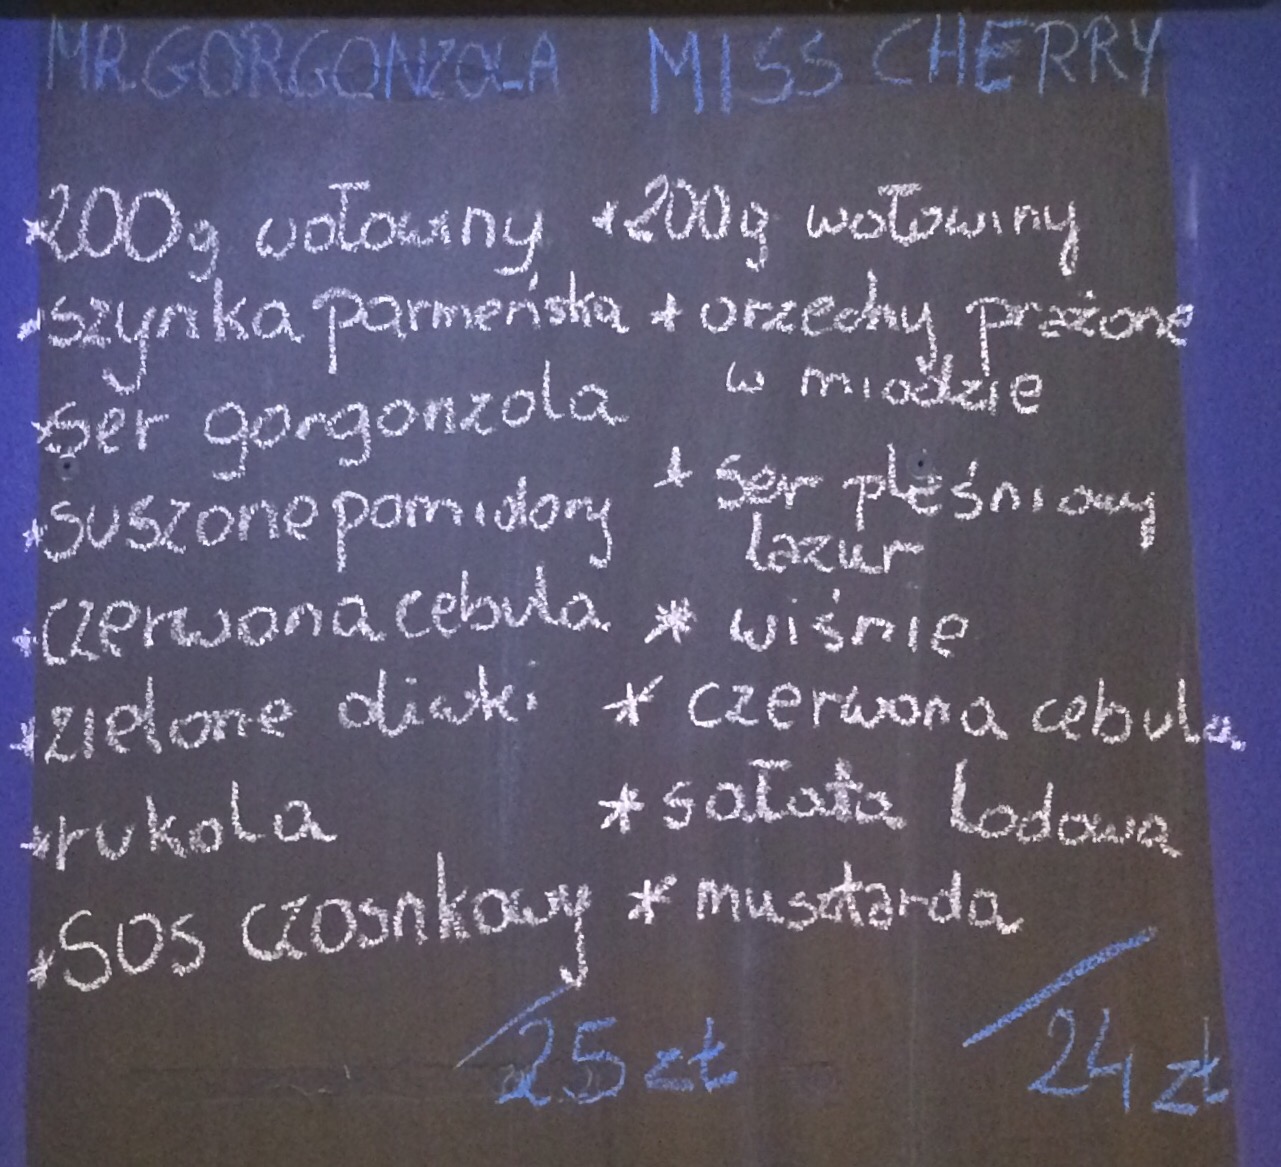 MR. GORGONZOLA
*200g wołowiny
*szynka parmeńska
*ser gorgonzola
*suszone pomidory
*czerwona cebula
*zielone oliwki
*rukola
*sos czosnkowy
25 zł
MISS CHERRY
*200g wołowiny
*orzechy prażone
w miodzie
*ser pleśniowy
lazur
*wiśnie
*czerwona cebula
*sałata lodowa
*musztarda
24 zł